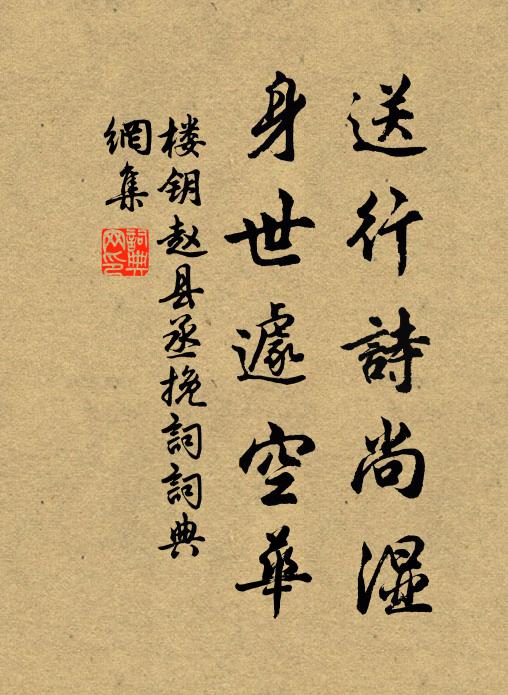 送行詩尚湿
身世遽空華
楼钥赵县丞挽詞詞典
網集
詞典
网印